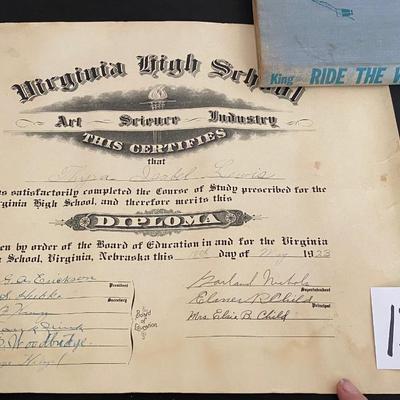 King RIDE THE W
Virginia High School
Art Science Industry
THIS CERTIFIES
that
Isabel Lewis
s satisfactorily completed the Course of Study prescribed for the
rginia High School, and therefore merits this
DIPLOMA
en by order of the Board of Education in and for the Virginia
School, Virginia, Nebraska this day of May 1923
G.A. Erickson
President
Garland Nichols
Superintendent
Secretary
Elmer R. Child
Principal
Mrs. Elsie B. Child
Board of Education
Woodbridge
1